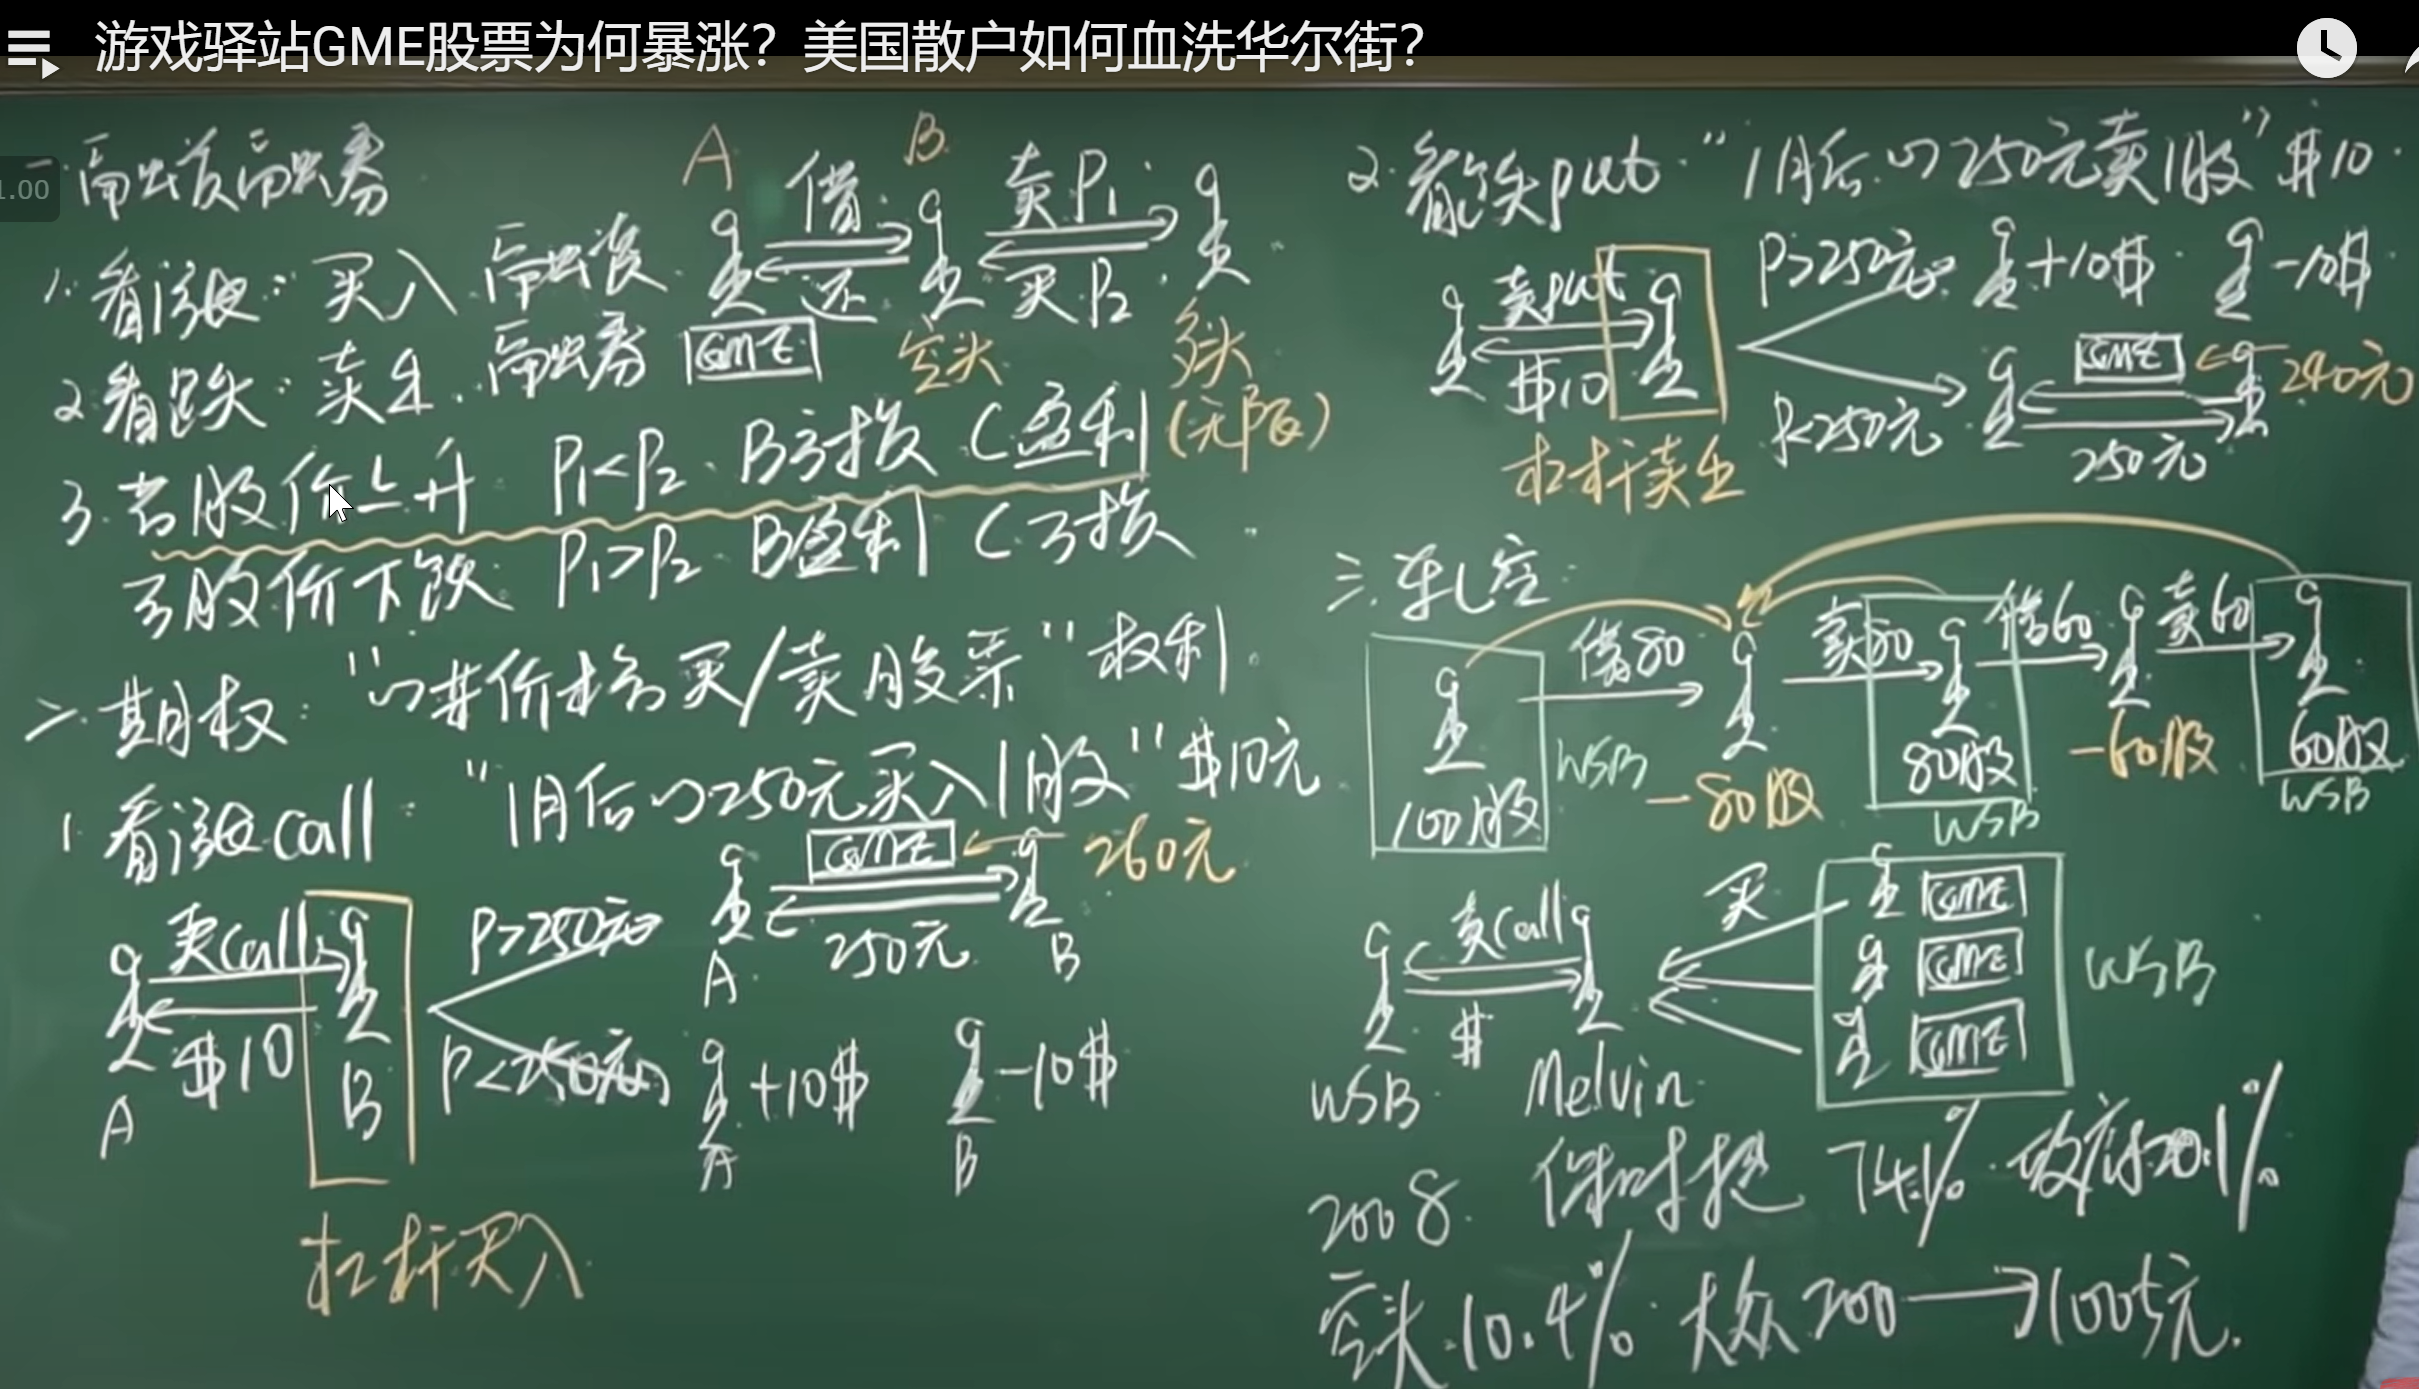 游戏驿站GME股票为何暴涨？美国散户如何血洗华尔街？
1.00
一.融资融券
A 借 B 卖P1
还 买P2
1.看涨：买入.融资
2.看跌：卖出.融券 GME 空头 多头
3.若股价上升 P1<P2 B亏损 C盈利 (无限)
若股价下跌 P1>P2 B盈利 C亏损
二.期权："以某价格买/卖股票"权利.
1.看涨call："1月后以250元买入1股" $10元
卖call $10 A B
P>250元 GME 260元 250元 A B
P<250元 +10$ -10$ A B
杠杆买入
2.看跌put."1月后以250元卖1股"$10.
卖put $10
P>250元 +10$ -10$
P<250元 GME 240元 250元
杠杆卖出
三.轧空
借80 卖80 借60 卖60
100股 WSB -80股 80股 WSB -60股 60股 WSB
卖call $ WSB Melvin
买 GME GME GME WSB
2008. 保时捷 74.1% 政府20.1%
空头.10.4% 大众200→1005元.